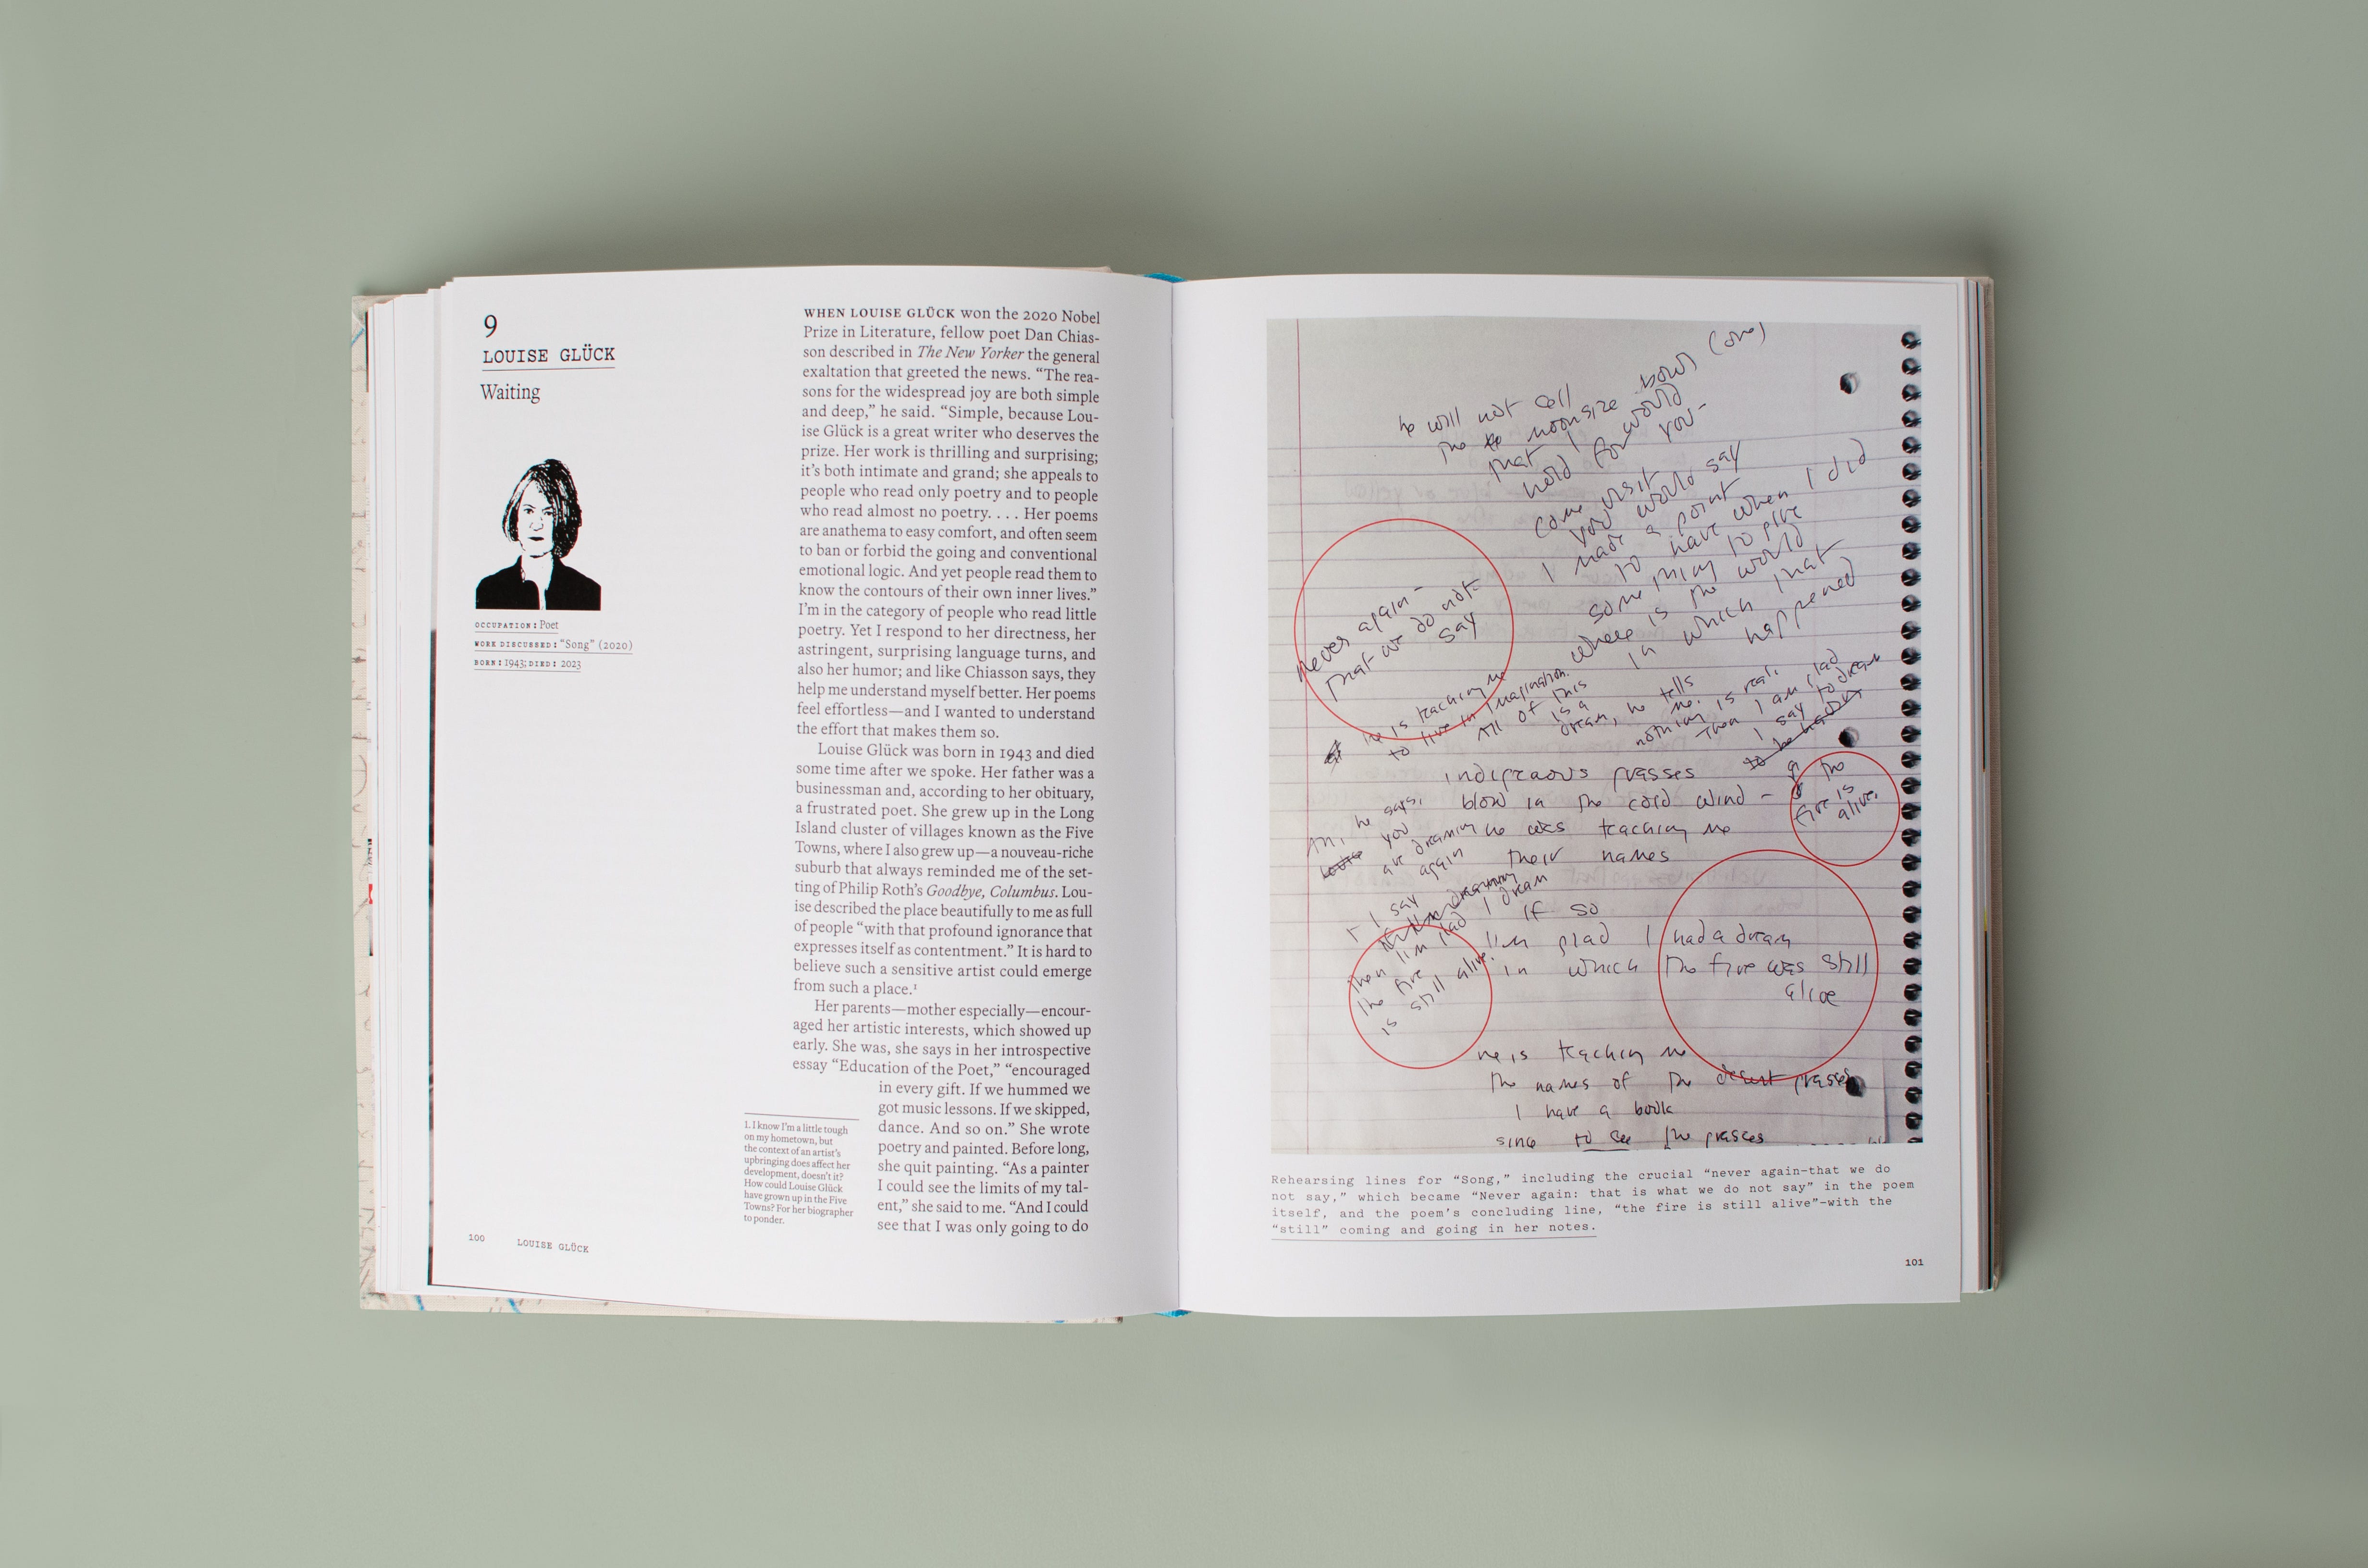 9
LOUISE GLÜCK
Waiting
OCCUPATION: Poet
WORK DISCUSSED: “Song” (2020)
BORN: 1943; DIED: 2023
WHEN LOUISE GLÜCK won the 2020 Nobel
Prize in Literature, fellow poet Dan Chias-
son described in The New Yorker the general
exaltation that greeted the news. “The rea-
sons for the widespread joy are both simple
and deep,” he said. “Simple, because Lou-
ise Glück is a great writer who deserves the
prize. Her work is thrilling and surprising;
it’s both intimate and grand; she appeals to
people who read only poetry and to people
who read almost no poetry. . . . Her poems
are anathema to easy comfort, and often seem
to ban or forbid the going and conventional
emotional logic. And yet people read them to
know the contours of their own inner lives.”
I’m in the category of people who read little
poetry. Yet I respond to her directness, her
astringent, surprising language turns, and
also her humor; and like Chiasson says, they
help me understand myself better. Her poems
feel effortless—and I wanted to understand
the effort that makes them so.
Louise Glück was born in 1943 and died
some time after we spoke. Her father was a
businessman and, according to her obituary,
a frustrated poet. She grew up in the Long
Island cluster of villages known as the Five
Towns, where I also grew up—a nouveau-riche
suburb that always reminded me of the set-
ting of Philip Roth’s Goodbye, Columbus. Lou-
ise described the place beautifully to me as full
of people “with that profound ignorance that
expresses itself as contentment.” It is hard to
believe such a sensitive artist could emerge
from such a place.¹
Her parents—mother especially—encour-
aged her artistic interests, which showed up
early. She was, she says in her introspective
essay “Education of the Poet,” “encouraged
in every gift. If we hummed we
got music lessons. If we skipped,
dance. And so on.” She wrote
poetry and painted. Before long,
she quit painting. “As a painter
I could see the limits of my tal-
ent,” she said to me. “And I could
see that I was only going to do
1. I know I’m a little tough
on my hometown, but
the context of an artist’s
upbringing does affect her
development, doesn’t it?
How could Louise Glück
have grown up in the Five
Towns? For her biographer
to ponder.
100 LOUISE GLÜCK
he will not sell
me the moonsize bowl (one)
that I would
hold for you-
come visit
you would say
I made a point
to have when I did
something to give
where is the world
in which that
happened
never again-
that we do not
say
he is teaching me
to live in imagination.
All of this
is a
dream, he tells
me. nothing is real.
Then I am glad
I say to dream
to be
indigenous grasses
blow in the cold wind -
he was teaching me
their names
the
fire is
alive.
Ah, he says,
you
are dreaming
again
I say
then I'm glad I dream
the fire
is still alive.
if so
I'm glad I had a dream
in which the fire was still
alive
he is teaching me
the names of the desert grasses
I have a book
since to see the grasses
Rehearsing lines for “Song,” including the crucial “never again—that we do
not say,” which became “Never again: that is what we do not say” in the poem
itself, and the poem’s concluding line, “the fire is still alive”—with the
“still” coming and going in her notes.
101